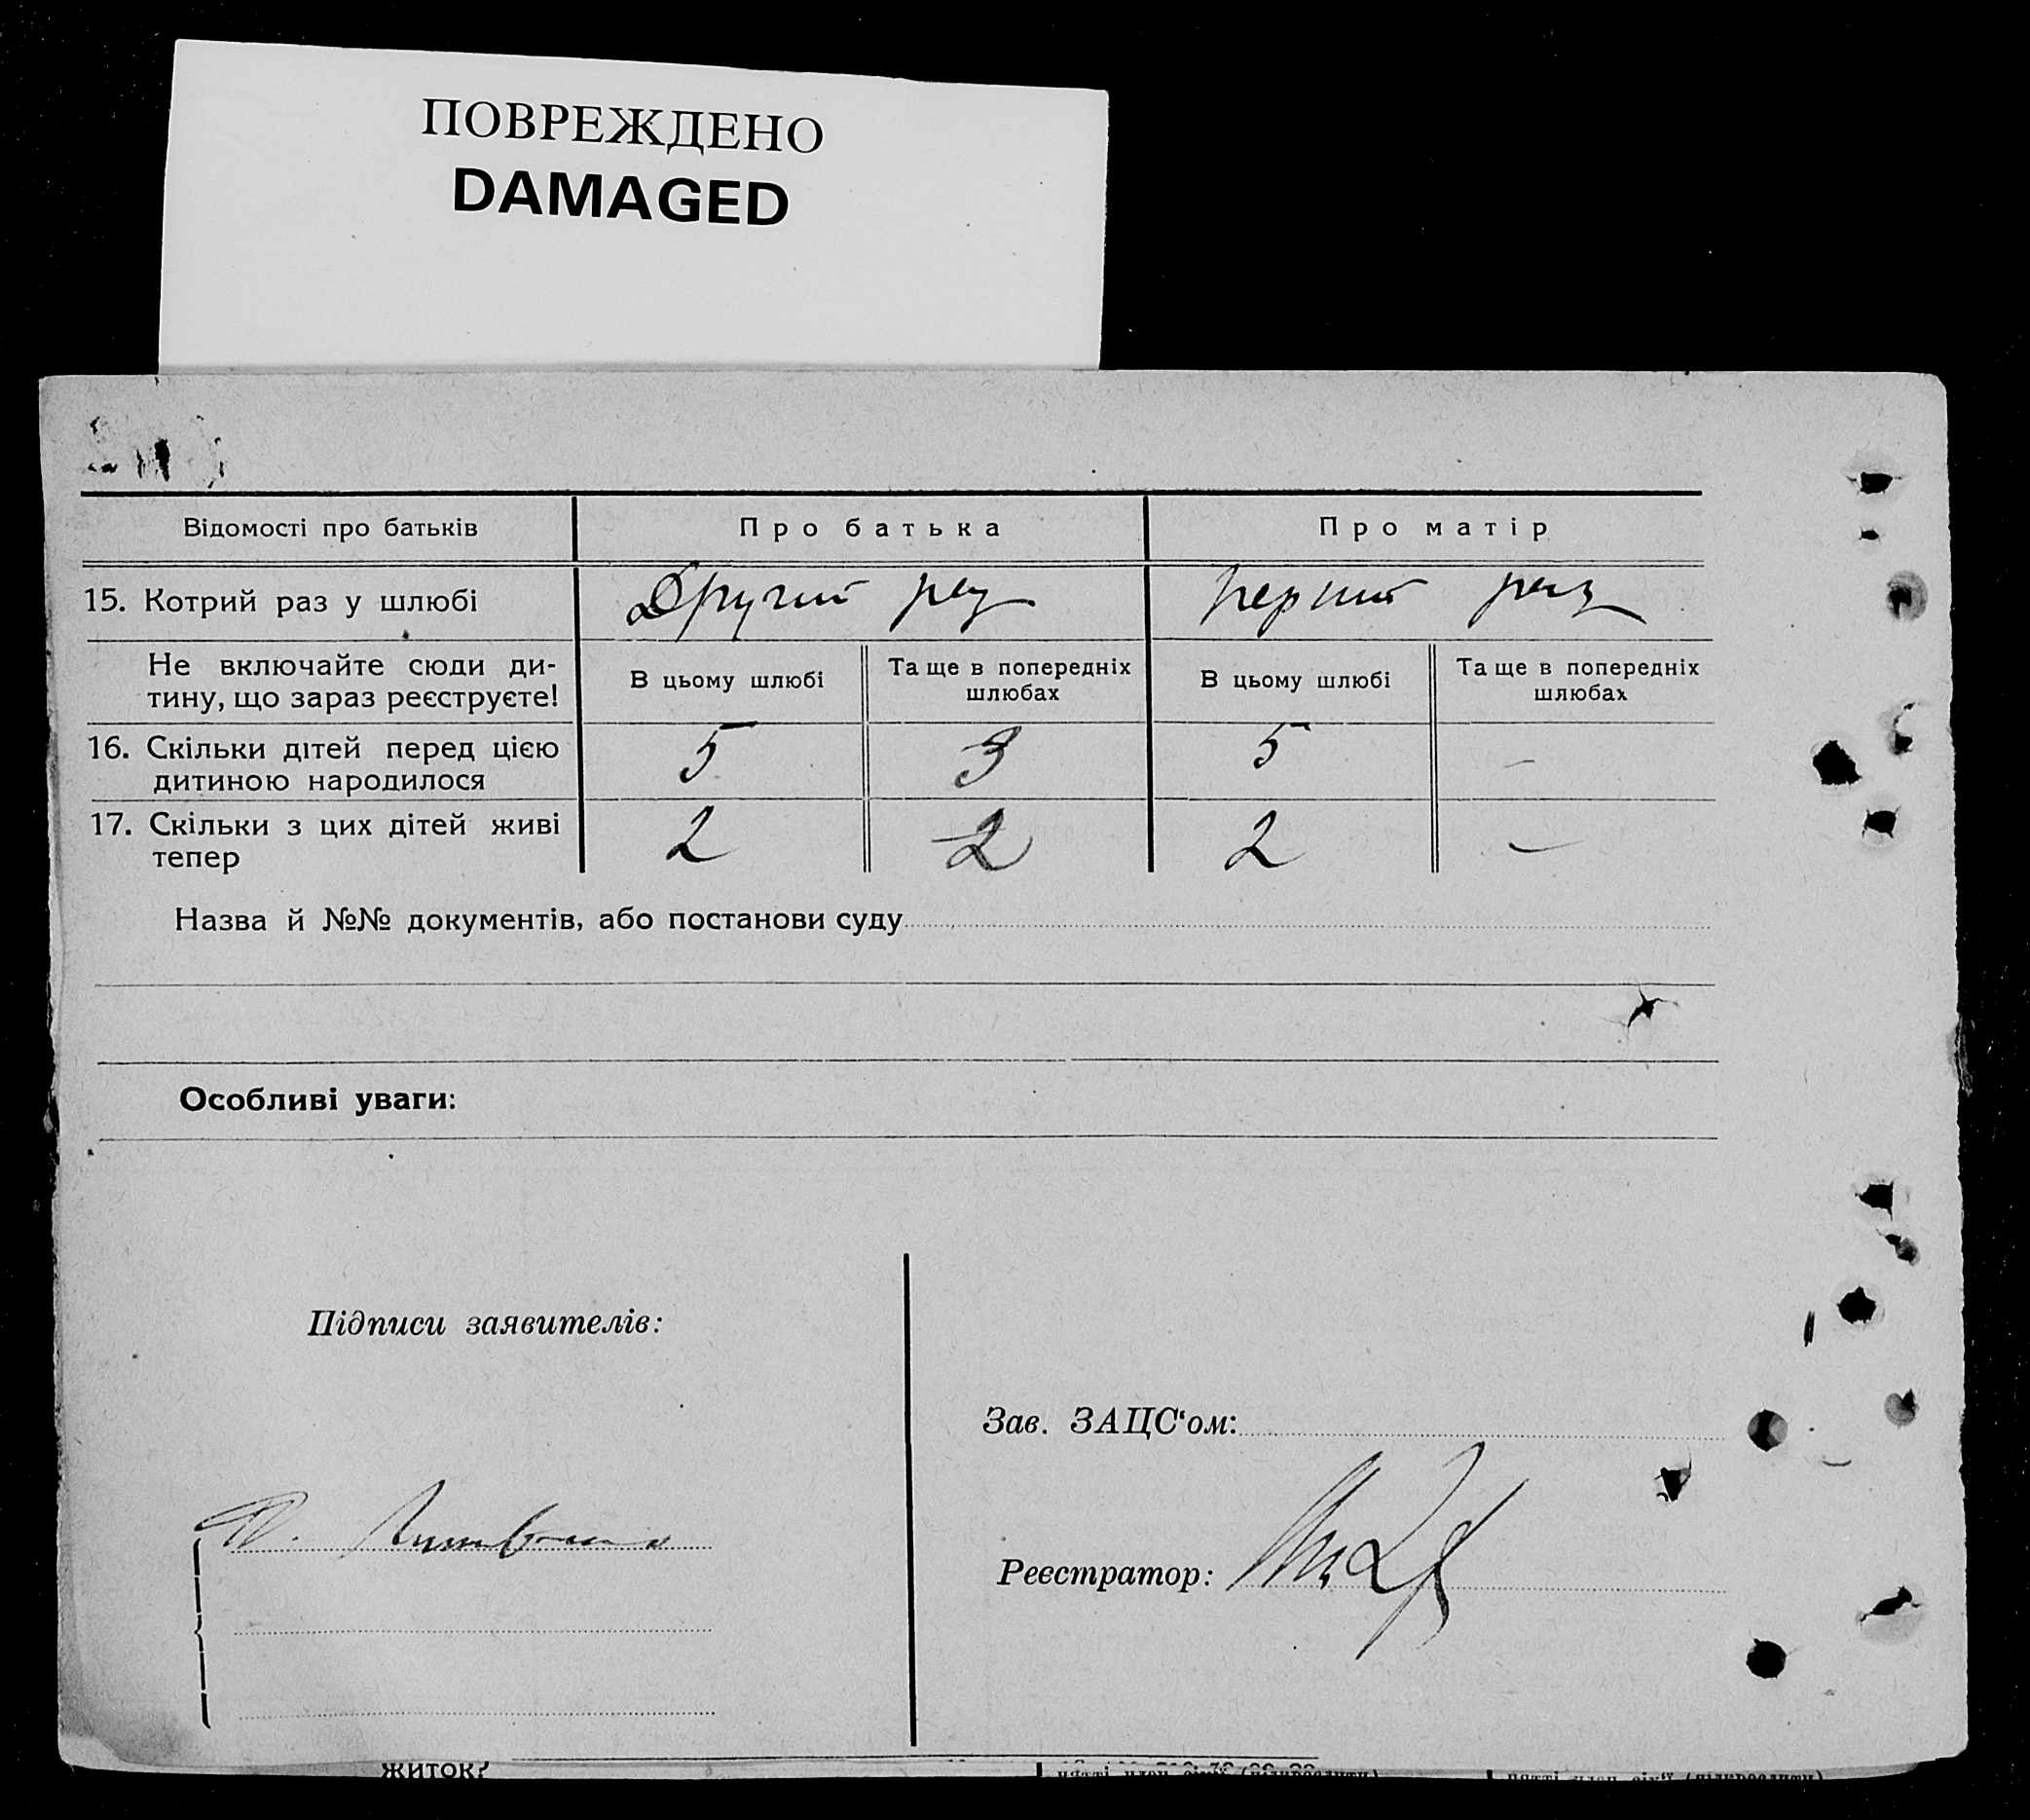 ПОВРЕЖДЕНО
DAMAGED
Відомості про батьків
Про батька
Про матір
15. Котрий раз у шлюбі
Другий раз
перший раз
Не включайте сюди ди-
тину, що зараз реєструєте!
В цьому шлюбі
Та ще в попередніх
шлюбах
В цьому шлюбі
Та ще в попередніх
шлюбах
16. Скільки дітей перед цією
дитиною народилося
5
3
5
–
17. Скільки з цих дітей живі
тепер
2
2
2
–
Назва й №№ документів, або постанови суду
Особливі уваги:
Підписи заявителів:
Зав. ЗАЦС‘ом:
Реєстратор:
житок?